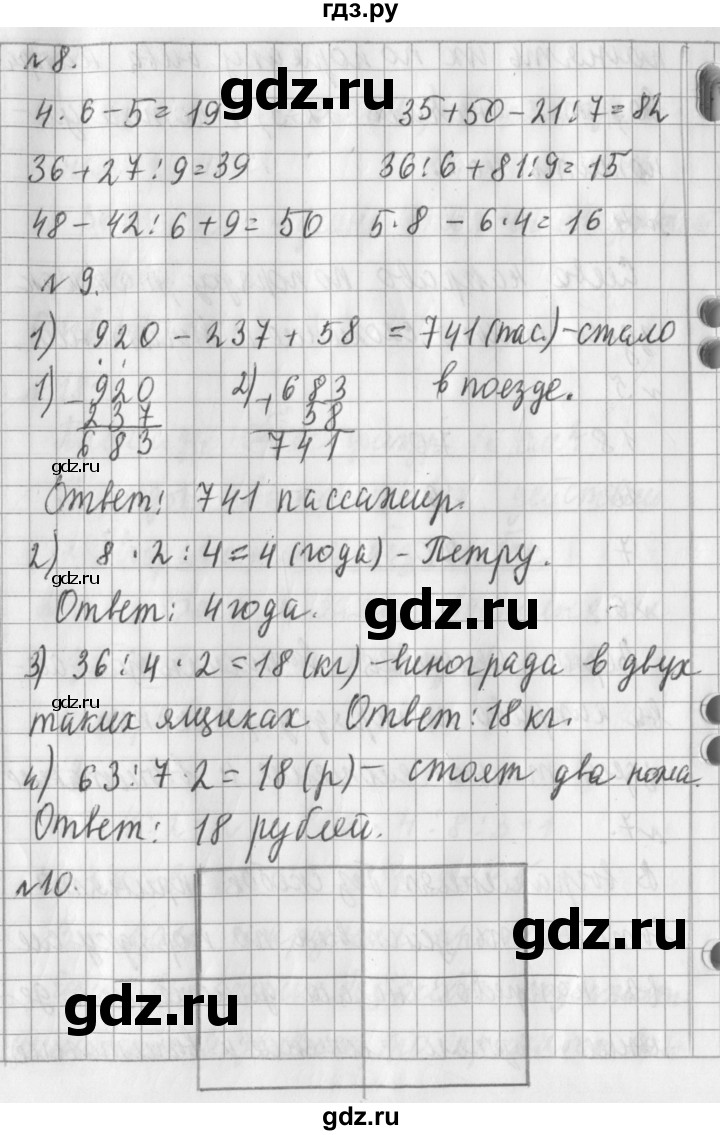 гдз.ру
№8.
4·6-5=19    35+50-21:7=82
36+27:9=39    36:6+81:9=15
48-42:6+9=50    5·8-6·4=16
№9.
1) 920-237+58=741(пас.)-стало
1) 920    2) 683    в поезде.
- 237    + 58
683    741
Ответ: 741 пассажир.
2) 8·2:4=4(года)-Петру.
Ответ: 4 года.
3) 36:4·2=18(кг)-винограда в двух
таких ящиках. Ответ: 18 кг.
4) 63:7·2=18(р)-стоят два ножа.
Ответ: 18 рублей.
№10.
gdz.ru
gdz.ru
gdz.ru
gdz.ru
gdz.ru
gdz.ru
gdz.ru
gdz.ru
gdz.ru
gdz.ru
gdz.ru